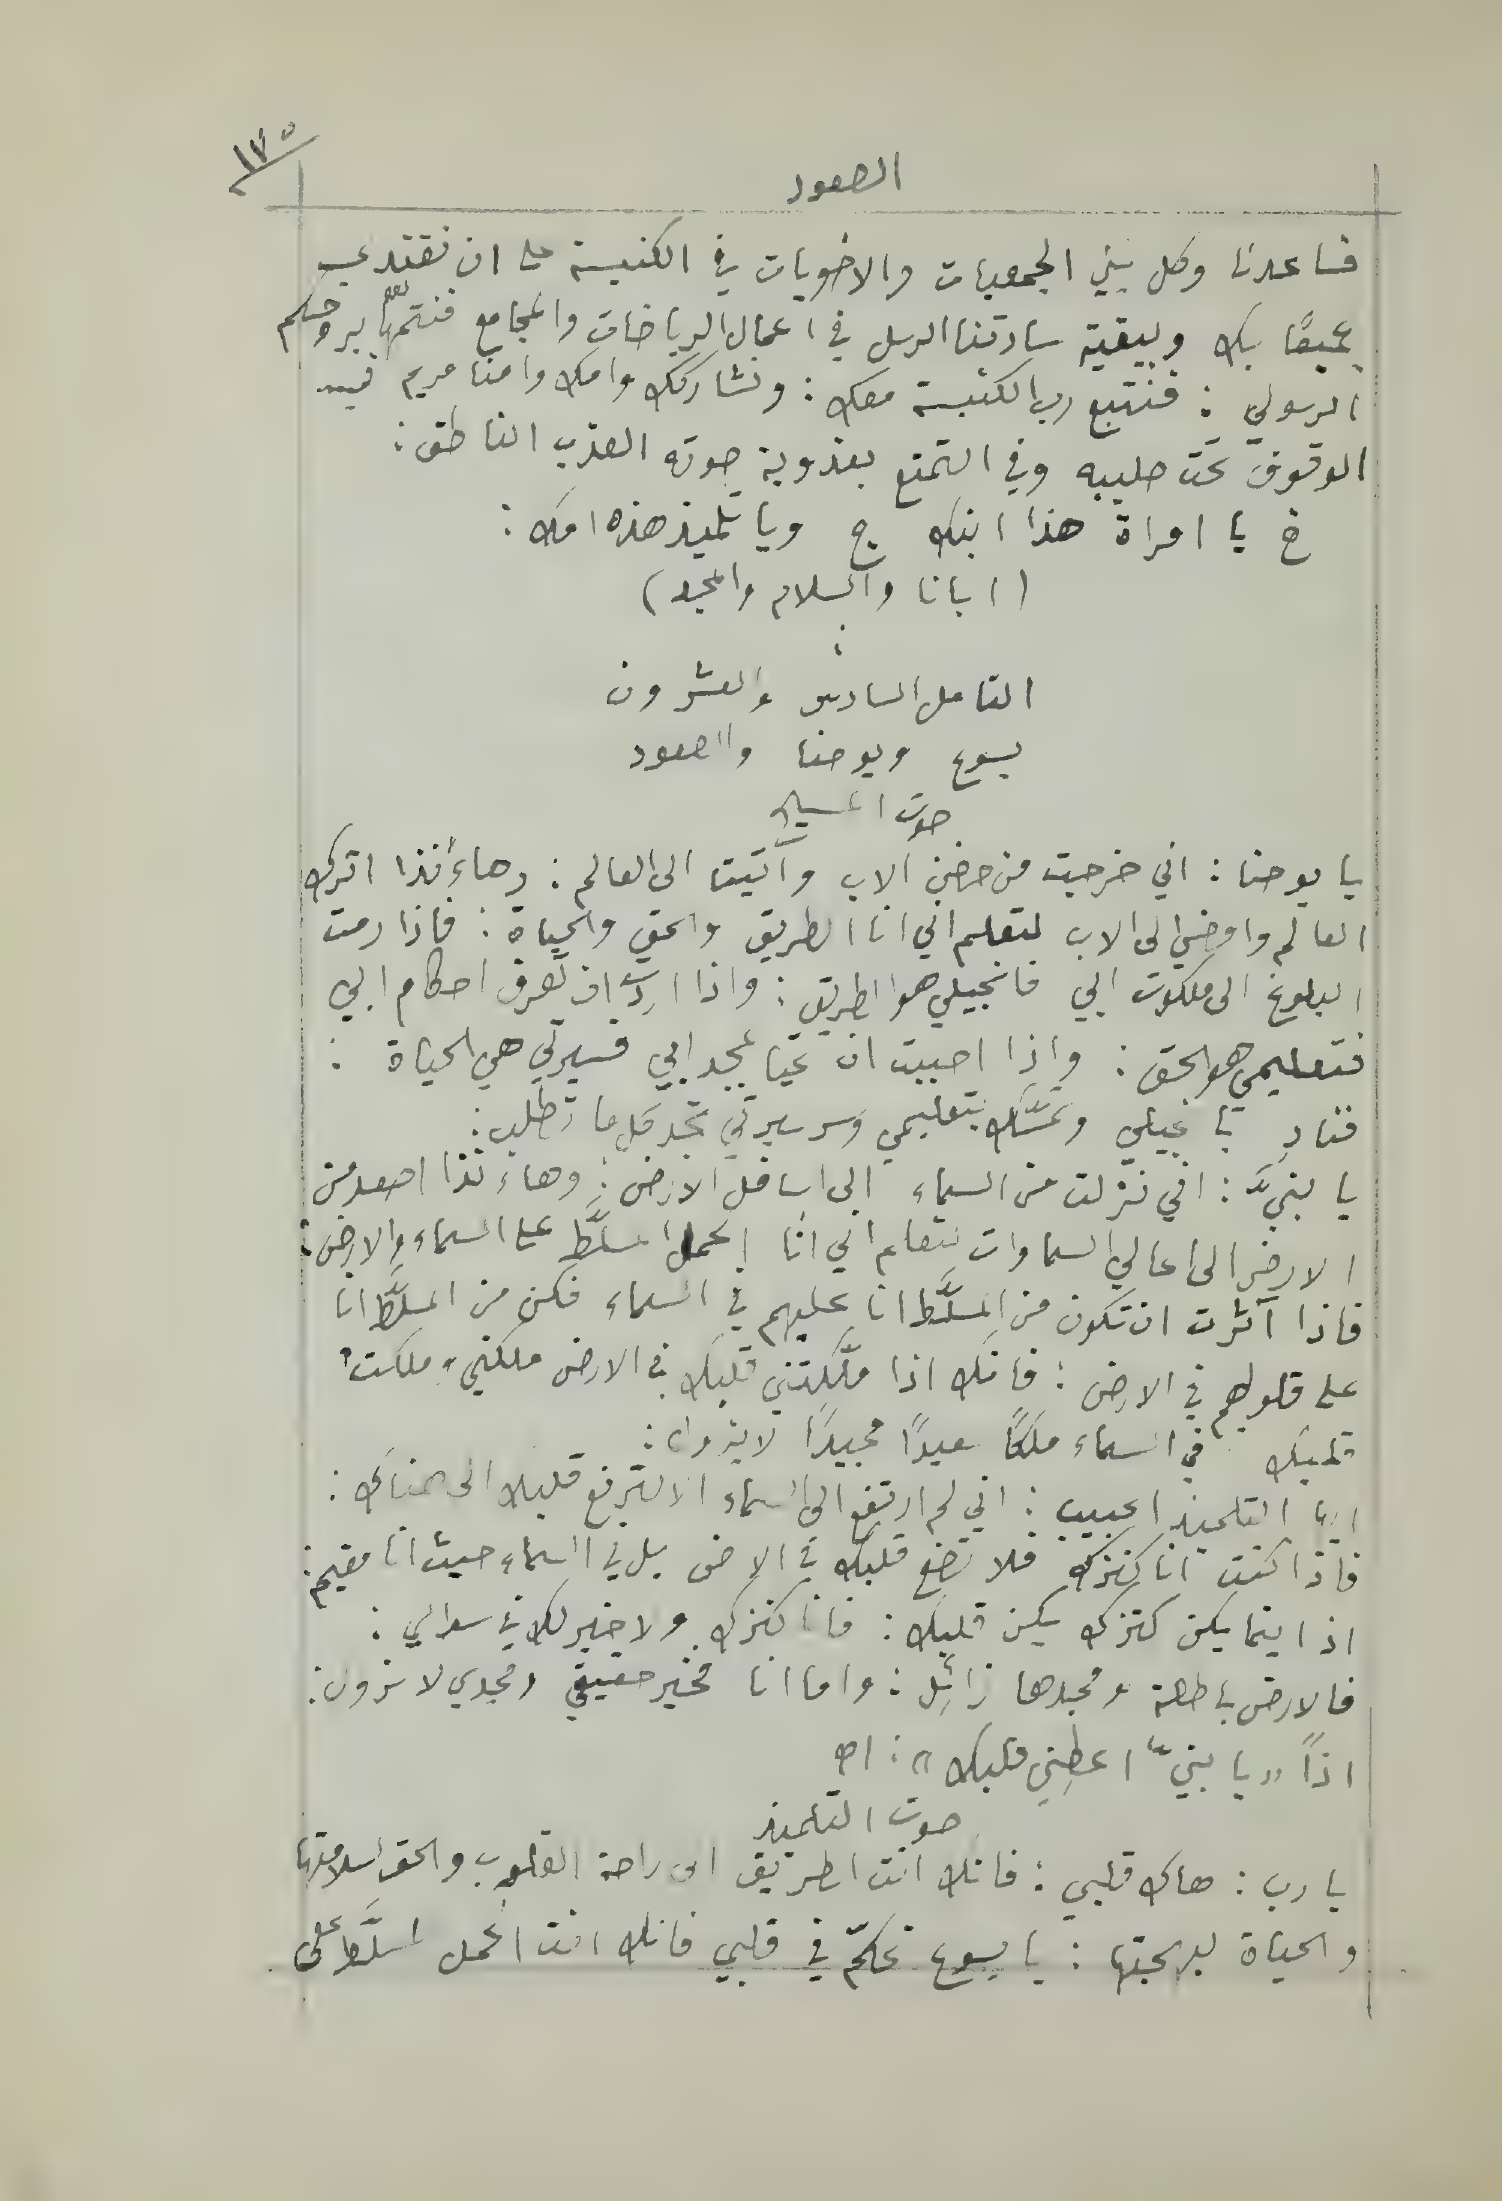 ١٧٥
الصعود
فساعدنا وكل بني الجمعيات والاخويات في الكنيسة على ان نقتدي
جميعًا بك وببقية سادتنا الرسل في اعمال الرياضات والمجامع فنتمها بروحكم
الرسولي : فنتبع رب الكنيسة معك : ونشاركك وامك وامنا مريم في
الوقوف تحت صليبه وفي التمتع بعذوبة صوته العذب الناطق :
خ يا امراة هذا ابنك ج ويا تلميذ هذه امك :
( ابانا والسلام والمجد )
التامل السادس والعشرون
يسوع ويوحنا والصعود
صوت المسيح
يا يوحنا : اني خرجت من حضن الاب وأتيت الى العالم : وهاءنذا اترك
العالم وامضي الى الاب لتعلم اني انا الطريق والحق والحياة : فاذا رمت
البلوغ الى ملكوت ابي فانجيلي هو الطريق : واذا اردت ان تعرف احكام ابي
فتعليمي هو الحق : واذا احببت ان تحيا بمجد ابي فسيرتي هي الحياة :
فنادِ بانجيلي وتمسَّك بتعليمي وسر سيرتي تجد كل ما تطلب :
يا بنيَّ : اني نزلت من السماء الى اسافل الارض : وهاءنذا اصعد من
الارض الى اعالي السماوات لتعلم اني انا الحمل المسلَّط على السماء والارض :
فاذا آثرت ان تكون من المسلَّط انا عليهم في السماء فكن من المسلَّط انا
على قلوبهم في الارض : فانك اذا ملَّكتني قلبك في الارض ملكتني وملكت
قلبك في السماء ملكًا سعيدًا مجيدًا لا يزول :
ايها التلميذ الحبيب : اني لم ارتفع الى السماء الا لترفع قلبك الى هناك :
فاذا كنت انا كنزك فلا تضع قلبك في الارض بل في السماء حيث انا مقيم :
اذ اينما يكن كنزك يكن قلبك : فانا كنزك ولا خير لك في سوائي :
فالارض باطلة ومجدها زائل : واما انا فخير حقيقي ومجدي لا يزول :
اذًا « يا بنيّ اعطِني قلبك » : اه
صوت التلميذ
يا رب : هاك قلبي : فانك انت الطريق الى راحة القلوب والحق لسلامتها
والحياة لبهجتها : يا يسوع تحكّم في قلبي فانك انت الحمل المسلَّط على